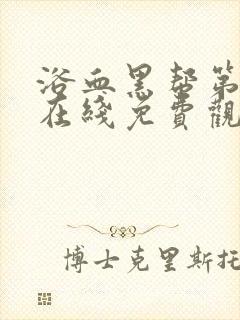 浴血黑帮第
在綫免費觀
博士克里斯托